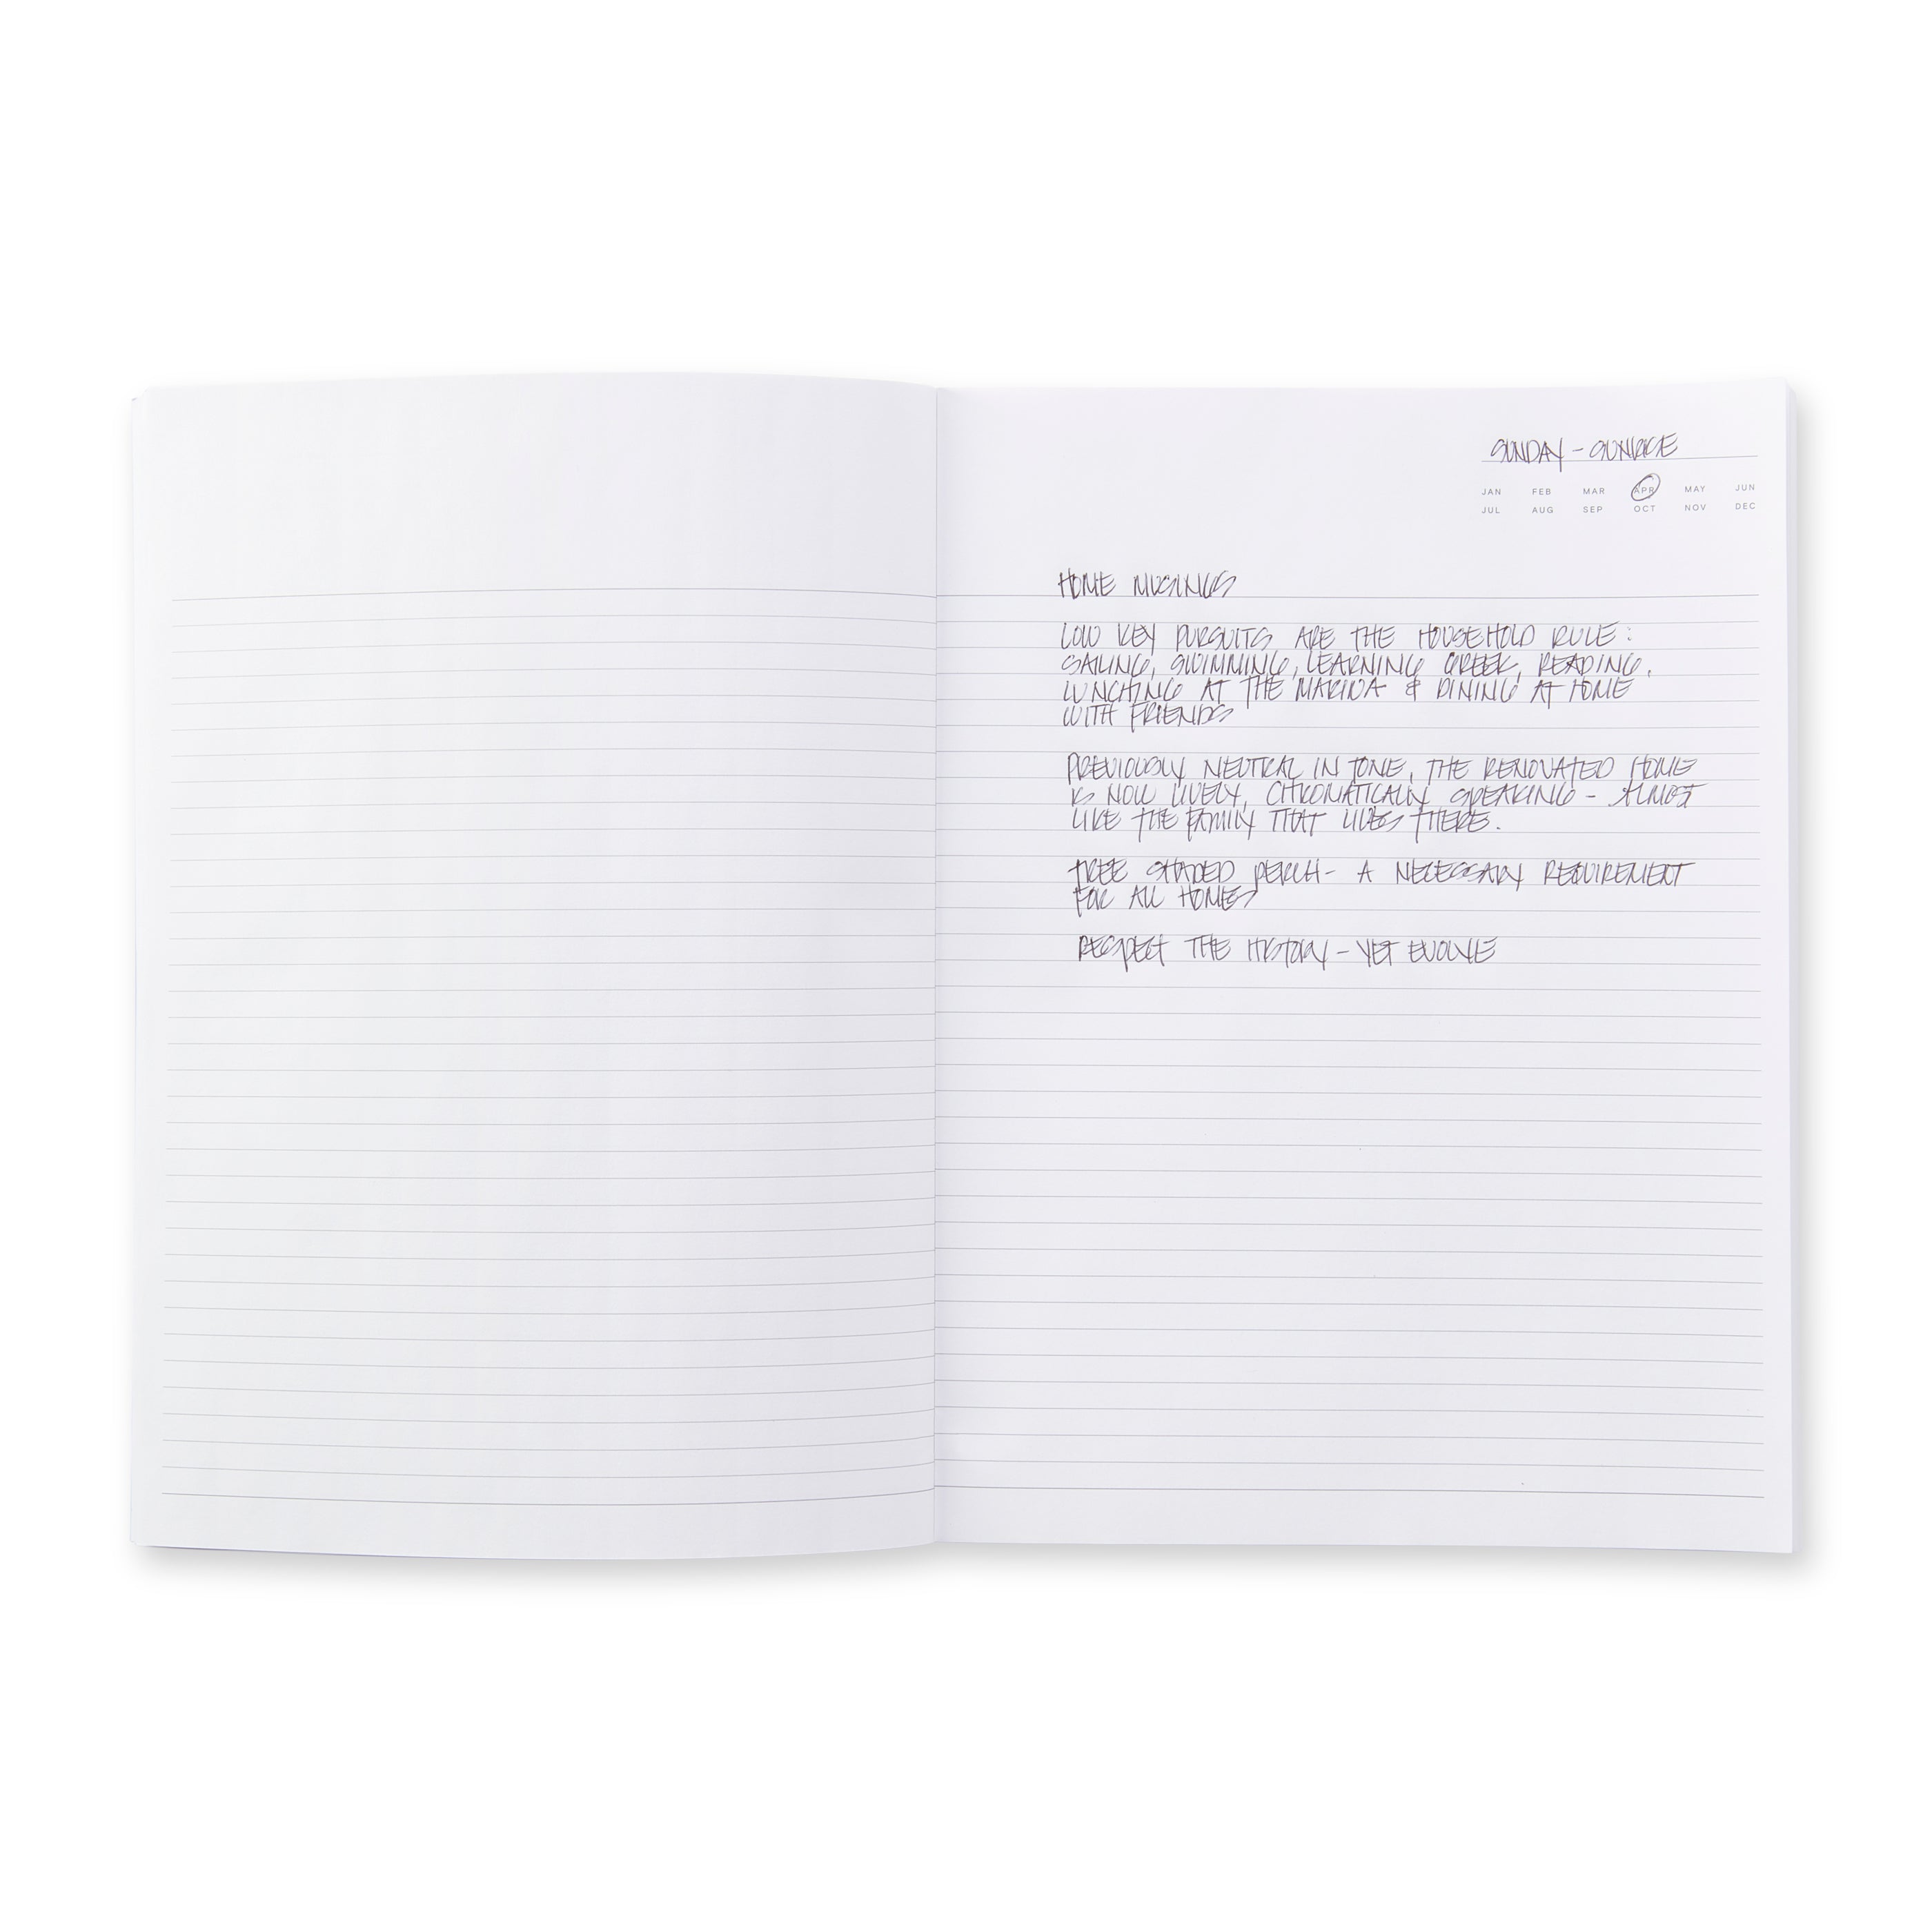 SUNDAY - SUNRISE
JAN FEB MAR APR MAY JUN
JUL AUG SEP OCT NOV DEC
HOME MUSINGS
LOW KEY PURSUITS ARE THE HOUSEHOLD RULE:
SAILING, SWIMMING, LEARNING GREEK, READING,
LUNCHING AT THE MARINA & DINING AT HOME
WITH FRIENDS
PREVIOUSLY NEUTRAL IN TONE, THE RENOVATED HOME
IS NOW LIVELY, CHROMATICALLY SPEAKING - ALMOST
LIKE THE FAMILY THAT LIVES THERE.
TREE SHADED PERCH - A NECESSARY REQUIREMENT
FOR ALL HOMES
RESPECT THE HISTORY - YET EVOLVE